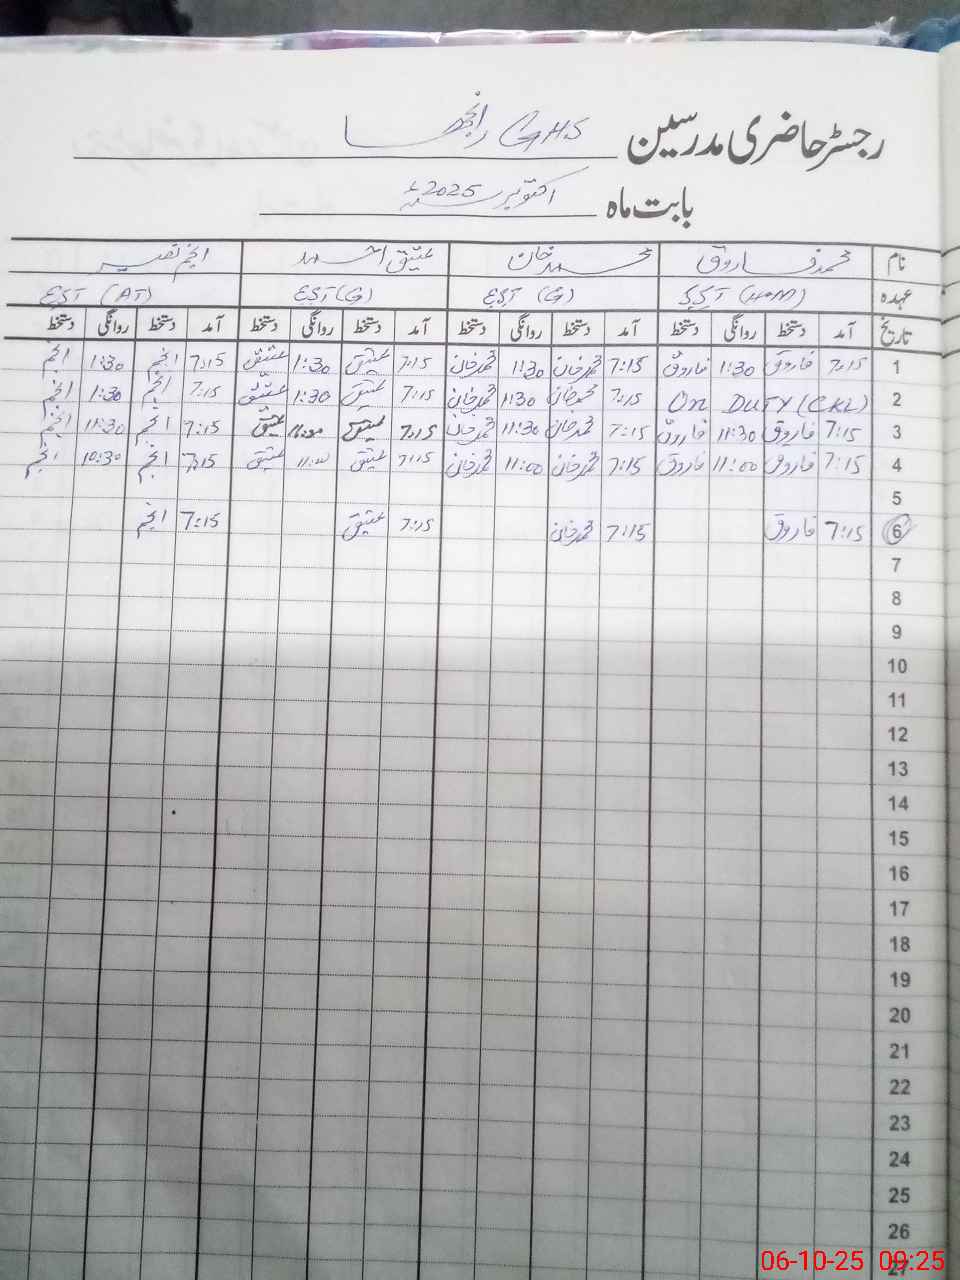 رجسٹر حاضری مدرسین GHS رانجھا
بابت ماہ اکتوبر 2025ء
نام محمد فاروق محمد خان عتیق احمد انجم نصیر
عہدہ (H.M) (G) (G) (AT)
تاریخ آمد دستخط روانگی دستخط آمد دستخط روانگی دستخط آمد دستخط روانگی دستخط آمد دستخط روانگی دستخط
1 7:15 فاروق 1:30 فاروق 7:15 محمد خان 1:30 محمد خان 7:15 عتیق 1:30 عتیق 7:15 انجم 1:30 انجم
2 On DUTY (CKL) 7:15 محمد خان 1:30 محمد خان 7:15 عتیق 1:30 عتیق 7:15 انجم 1:30 انجم
3 7:15 فاروق 11:30 فاروق 7:15 محمد خان 11:30 محمد خان 7:15 عتیق 11:30 عتیق 7:15 انجم 11:30 انجم
4 7:15 فاروق 11:00 فاروق 7:15 محمد خان 11:00 محمد خان 7:15 عتیق 11:00 عتیق 7:15 انجم 10:30 انجم
5
6 7:15 فاروق 7:15 محمد خان 7:15 عتیق 7:15 انجم
7
8
9
10
11
12
13
14
15
16
17
18
19
20
21
22
23
24
25
26
27
06-10-25 09:25